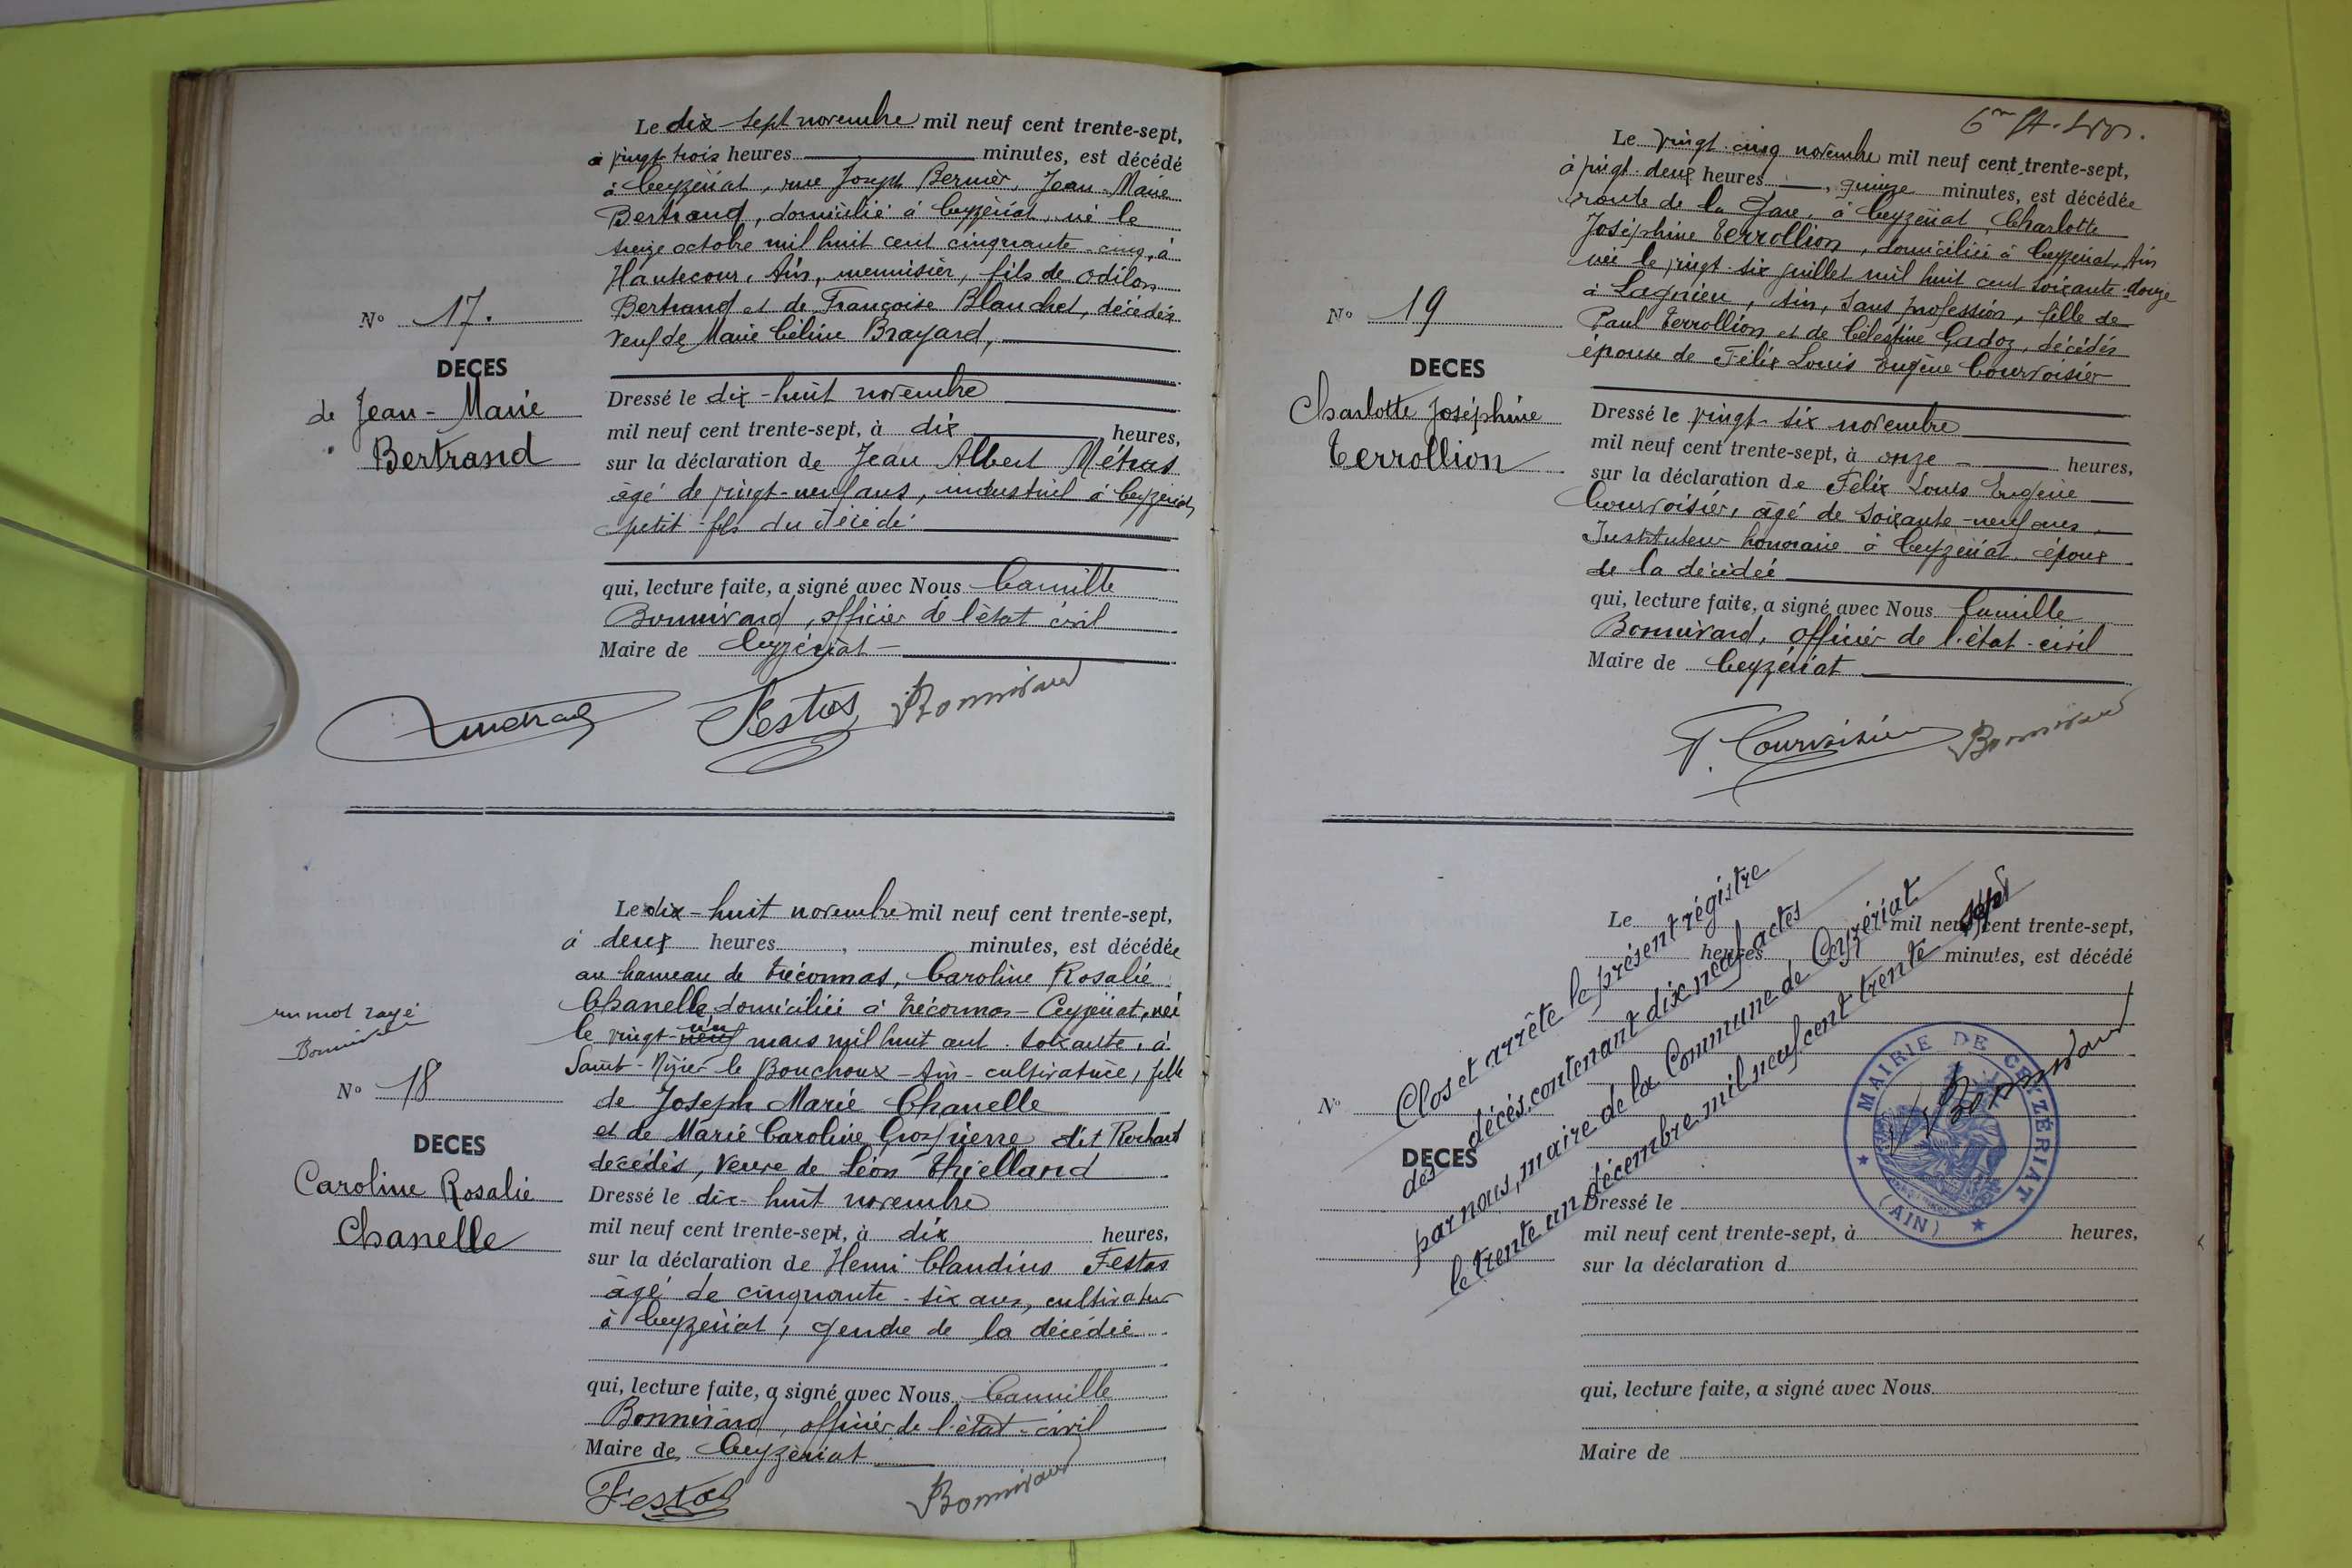 Le dix-sept novembre mil neuf cent trente-sept,
à vingt trois heures minutes, est décédé
à Ceyzériat, rue Joseph Bernier, Jean-Marie
Bertrand, domicilié à Ceyzériat, né le
octobre mil huit cent cinquante-cinq, à
Hautecour, Ain, menuisier, fils de Odilon
Bertrand et de Françoise Blanchet, décédés
veuf de Marie Céline Brayard,
N° 17.
DECES
de Jean-Marie
Bertrand
Dressé le dix-huit novembre
mil neuf cent trente-sept, à dix heures,
sur la déclaration de Jean Albert Métras
âgé de vingt-neuf ans, industriel à Ceyzériat,
petit-fils du décédé
qui, lecture faite, a signé avec Nous Camille
Bonnivard, officier de l'état civil
Maire de Ceyzériat
Festas Bonnivard
Le dix-huit novembre mil neuf cent trente-sept,
à deux heures, minutes, est décédée
au hameau de Tréconnas, Caroline Rosalie
Chanelle, domiciliée à Tréconnas-Ceyzériat, née
un mot rayé
Bonnivard
le vingt-neuf un mars mil huit cent soixante, à
Saint-Nizier le Bouchoux-Ain-cultivatrice, fille
N° 18
de Joseph Marie Chanelle
et de Marie Caroline Grospierre dit Rochard
DECES
décédés, veuve de Léon Thielland
Caroline Rosalie
Chanelle
Dressé le dix-huit novembre
mil neuf cent trente-sept, à dix heures,
sur la déclaration de Henri Claudius Festas
âgé de cinquante-six ans, cultivateur
à Ceyzériat, gendre de la décédée
qui, lecture faite, a signé avec Nous Camille
Bonnivard, officier de l'état-civil
Maire de Ceyzériat
Festas Bonnivard
Le vingt-cinq novembre mil neuf cent trente-sept,
à vingt-deux heures, quinze minutes, est décédée
route de la Gare, à Ceyzériat, Charlotte
Joséphine Terrollion, domiciliée à Ceyzériat, Ain
née le vingt-six juillet mil huit cent soixante-douze
à Lagnieu, Ain, sans profession, fille de
N° 19
Paul Terrollion et de Célestine Gadoz, décédés
épouse de Félix Louis Eugène Courvoisier
DECES
Charlotte Joséphine
Terrollion
Dressé le vingt-six novembre
mil neuf cent trente-sept, à onze heures,
sur la déclaration de Félix Louis Eugène
Courvoisier, âgé de soixante-neuf ans,
Instituteur honoraire à Ceyzériat, époux
de la décédée
qui, lecture faite, a signé avec Nous Camille
Bonnivard, officier de l'état-civil
Maire de Ceyzériat
F. Courvoisier Bonnivard
Le mil neuf cent trente-sept,
heures minutes, est décédé
Clos et arrêté le présent régistre
des décés, contenant dix neuf actes
par nous, maire de la Commune de Ceyzériat
le trente un décembre mil neuf cent trente sept
Bonnivard
MAIRIE DE CEYZÉRIAT
(AIN)
N°
DECES
Dressé le
mil neuf cent trente-sept, à heures,
sur la déclaration d
qui, lecture faite, a signé avec Nous
Maire de